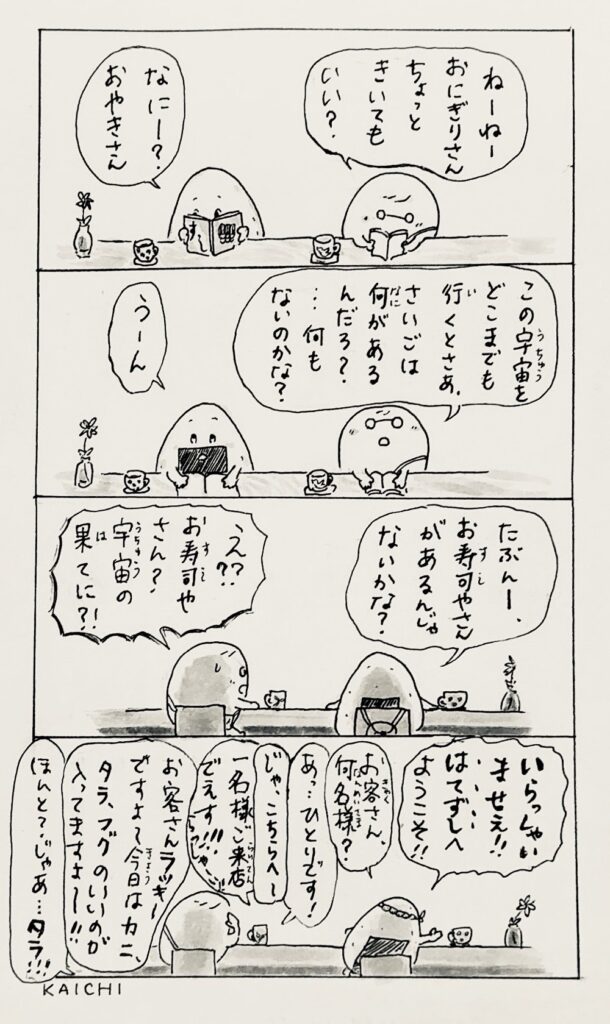 ねーねー
おにぎりさん
ちょっと
きいても
いい?
なにー?
おやきさん
すし
この宇宙を
うちゅう
どこまでも
行くとさあ、
い
さいごは
何がある
なに
んだろ?
…何も
ないのかな?
うーん
たぶんー、
お寿司やさん
すし
があるんじゃ
ないかな?
え??
お寿司や
すし
さん?
宇宙の
うちゅう
果てに?!
は
いらっしゃい
ませえ!!
はてずしへ
ようこそ!!
お客さん、
きゃく
何名様?
なんめいさま
あっ…ひとりです!
じゃ、こちらへ〜
一名様ご来店
らいてん
でえす!!!
らっしゃい
お客さんラッキー
きゃく
ですよ〜今日はカニ、
きょう
タラ、フグの〜いいのが
入ってますよ〜!!
ほんと?じゃあ…タラ!!!
KAICHI